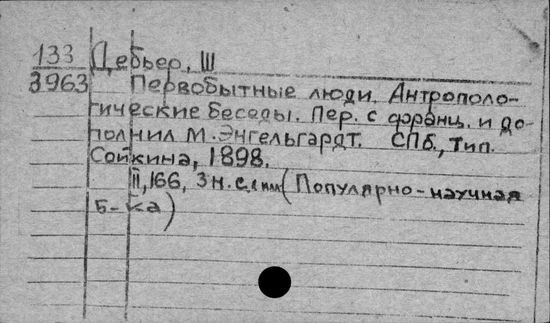 133 Дебьер, Ш
3963 Первобытные люди. Антрополо-
гические беседы. Пер. с франц. и до-
полнил М. Энгельгардт. СПб., Тип.
Сойкина, 1898.
II, 166, 3 н.с. (Популярно-научная
б-ка)